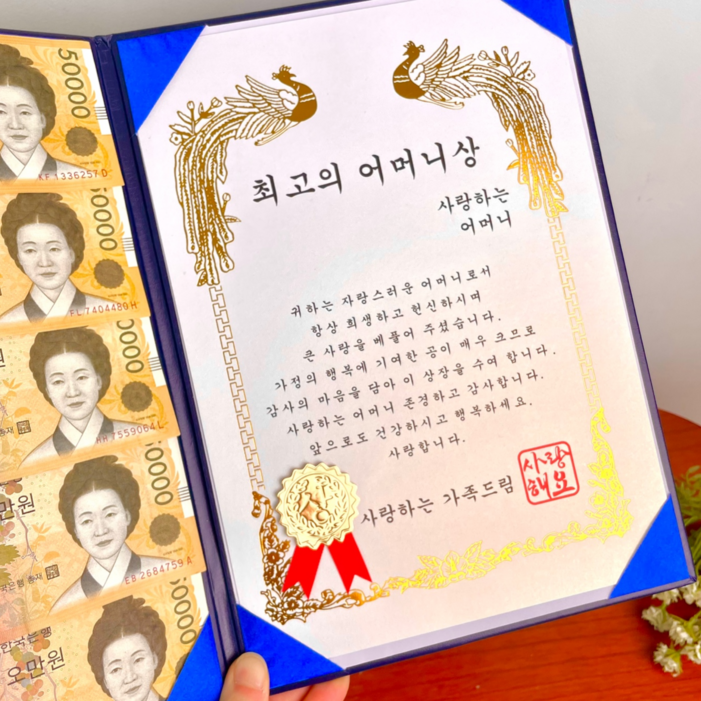 50000
KF 1336257 D
50000
FL 7404480 H
원
50000
총재
HH 7559064 L
50000
만원
국은행 총재
EB 2684759 A
50000
한국은행
오만원
최고의 어머니상
사랑하는
어머니
귀하는 자랑스러운 어머니로서
항상 희생하고 헌신하시며
큰 사랑을 베풀어 주셨습니다.
가정의 행복에 기여한 공이 매우 크므로
감사의 마음을 담아 이 상장을 수여 합니다.
사랑하는 어머니 존경하고 감사합니다.
앞으로도 건강하시고 행복하세요.
사랑합니다.
사랑하는 가족드림
사랑
해요